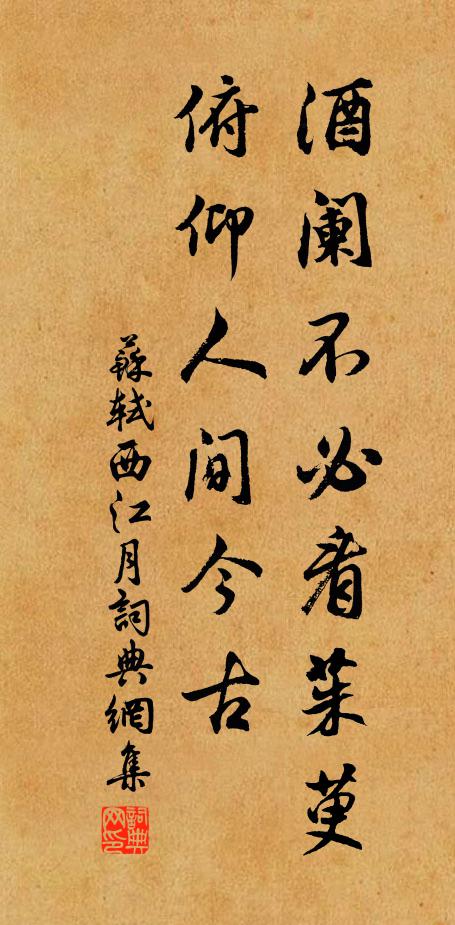 酒阑不必看茱萸
俯仰人间今古
蘇軾西江月詞典網集
詞典网印